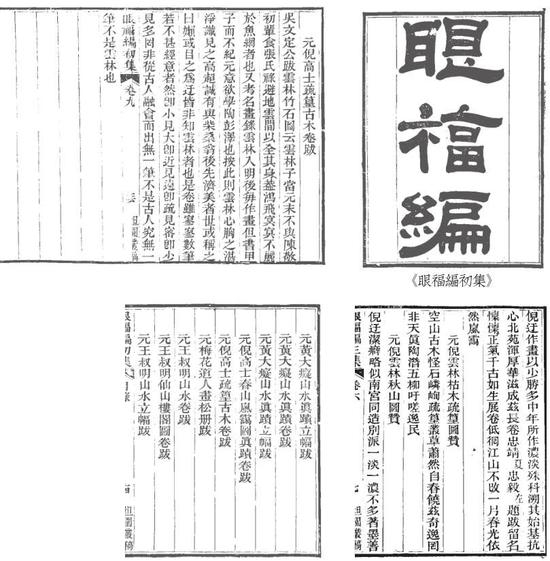 眼福編
《眼福編初集》
元倪高士疏篁古木卷跋
吳文定公跋雲林竹石圖云雲林子當元末不與陳敬
初輩食張氏祿避地雲間以全其身葢鴻飛冥冥不麗
於魚網者也又考名畫錄雲林入明後每作畫但書甲
子而不紀元意欲學陶彭澤也按此則雲林心胸之湛
淨識見之高超誠有與柴桑翁後先濟美者世或稱之
曰嬾或目之為迂皆非知雲林者也是卷雖寥寥數筆
若不甚經意者然卽小見大卽近見遠卽疏見密卽少
見多固非從古人融會而出無一筆不是古人究無一
眼福編初集 卷九 坦園叢稿
筆不是雲林也
倪迂作畫以少勝多中年所作濃淡殊科溯其始基抗
心北苑渾厚華滋成茲長卷忠靖夏忠毅左題跋留名
懍懍正氣千古如生展卷低徊江山不改一月春光依
然嵐靄
元倪雲林枯木疏篁圖贊
空山古木怪石嶙峋疏篁叢草蕭然自春饒茲奇逸罔
非天眞陶潛五柳吁嗟逸民
元倪雲林秋山圖贊
倪迂潔癖略似南宮同造別派一淡一濃不多著墨善
眼福編三集 卷六 七 坦園叢稿
元黃大癡山水眞蹟立幅跋
元黃大癡山水眞蹟卷跋
元黃大癡山水眞蹟立幅跋
元倪高士春山嵐靄圖眞蹟卷跋
元倪高士疏篁古木卷跋
元梅花道人畫松册跋
元王叔明山水卷跋
元王叔明仙山樓閣圖卷跋
元王叔明山水立幅跋
眼福編初集 目錄 四 坦園叢稿